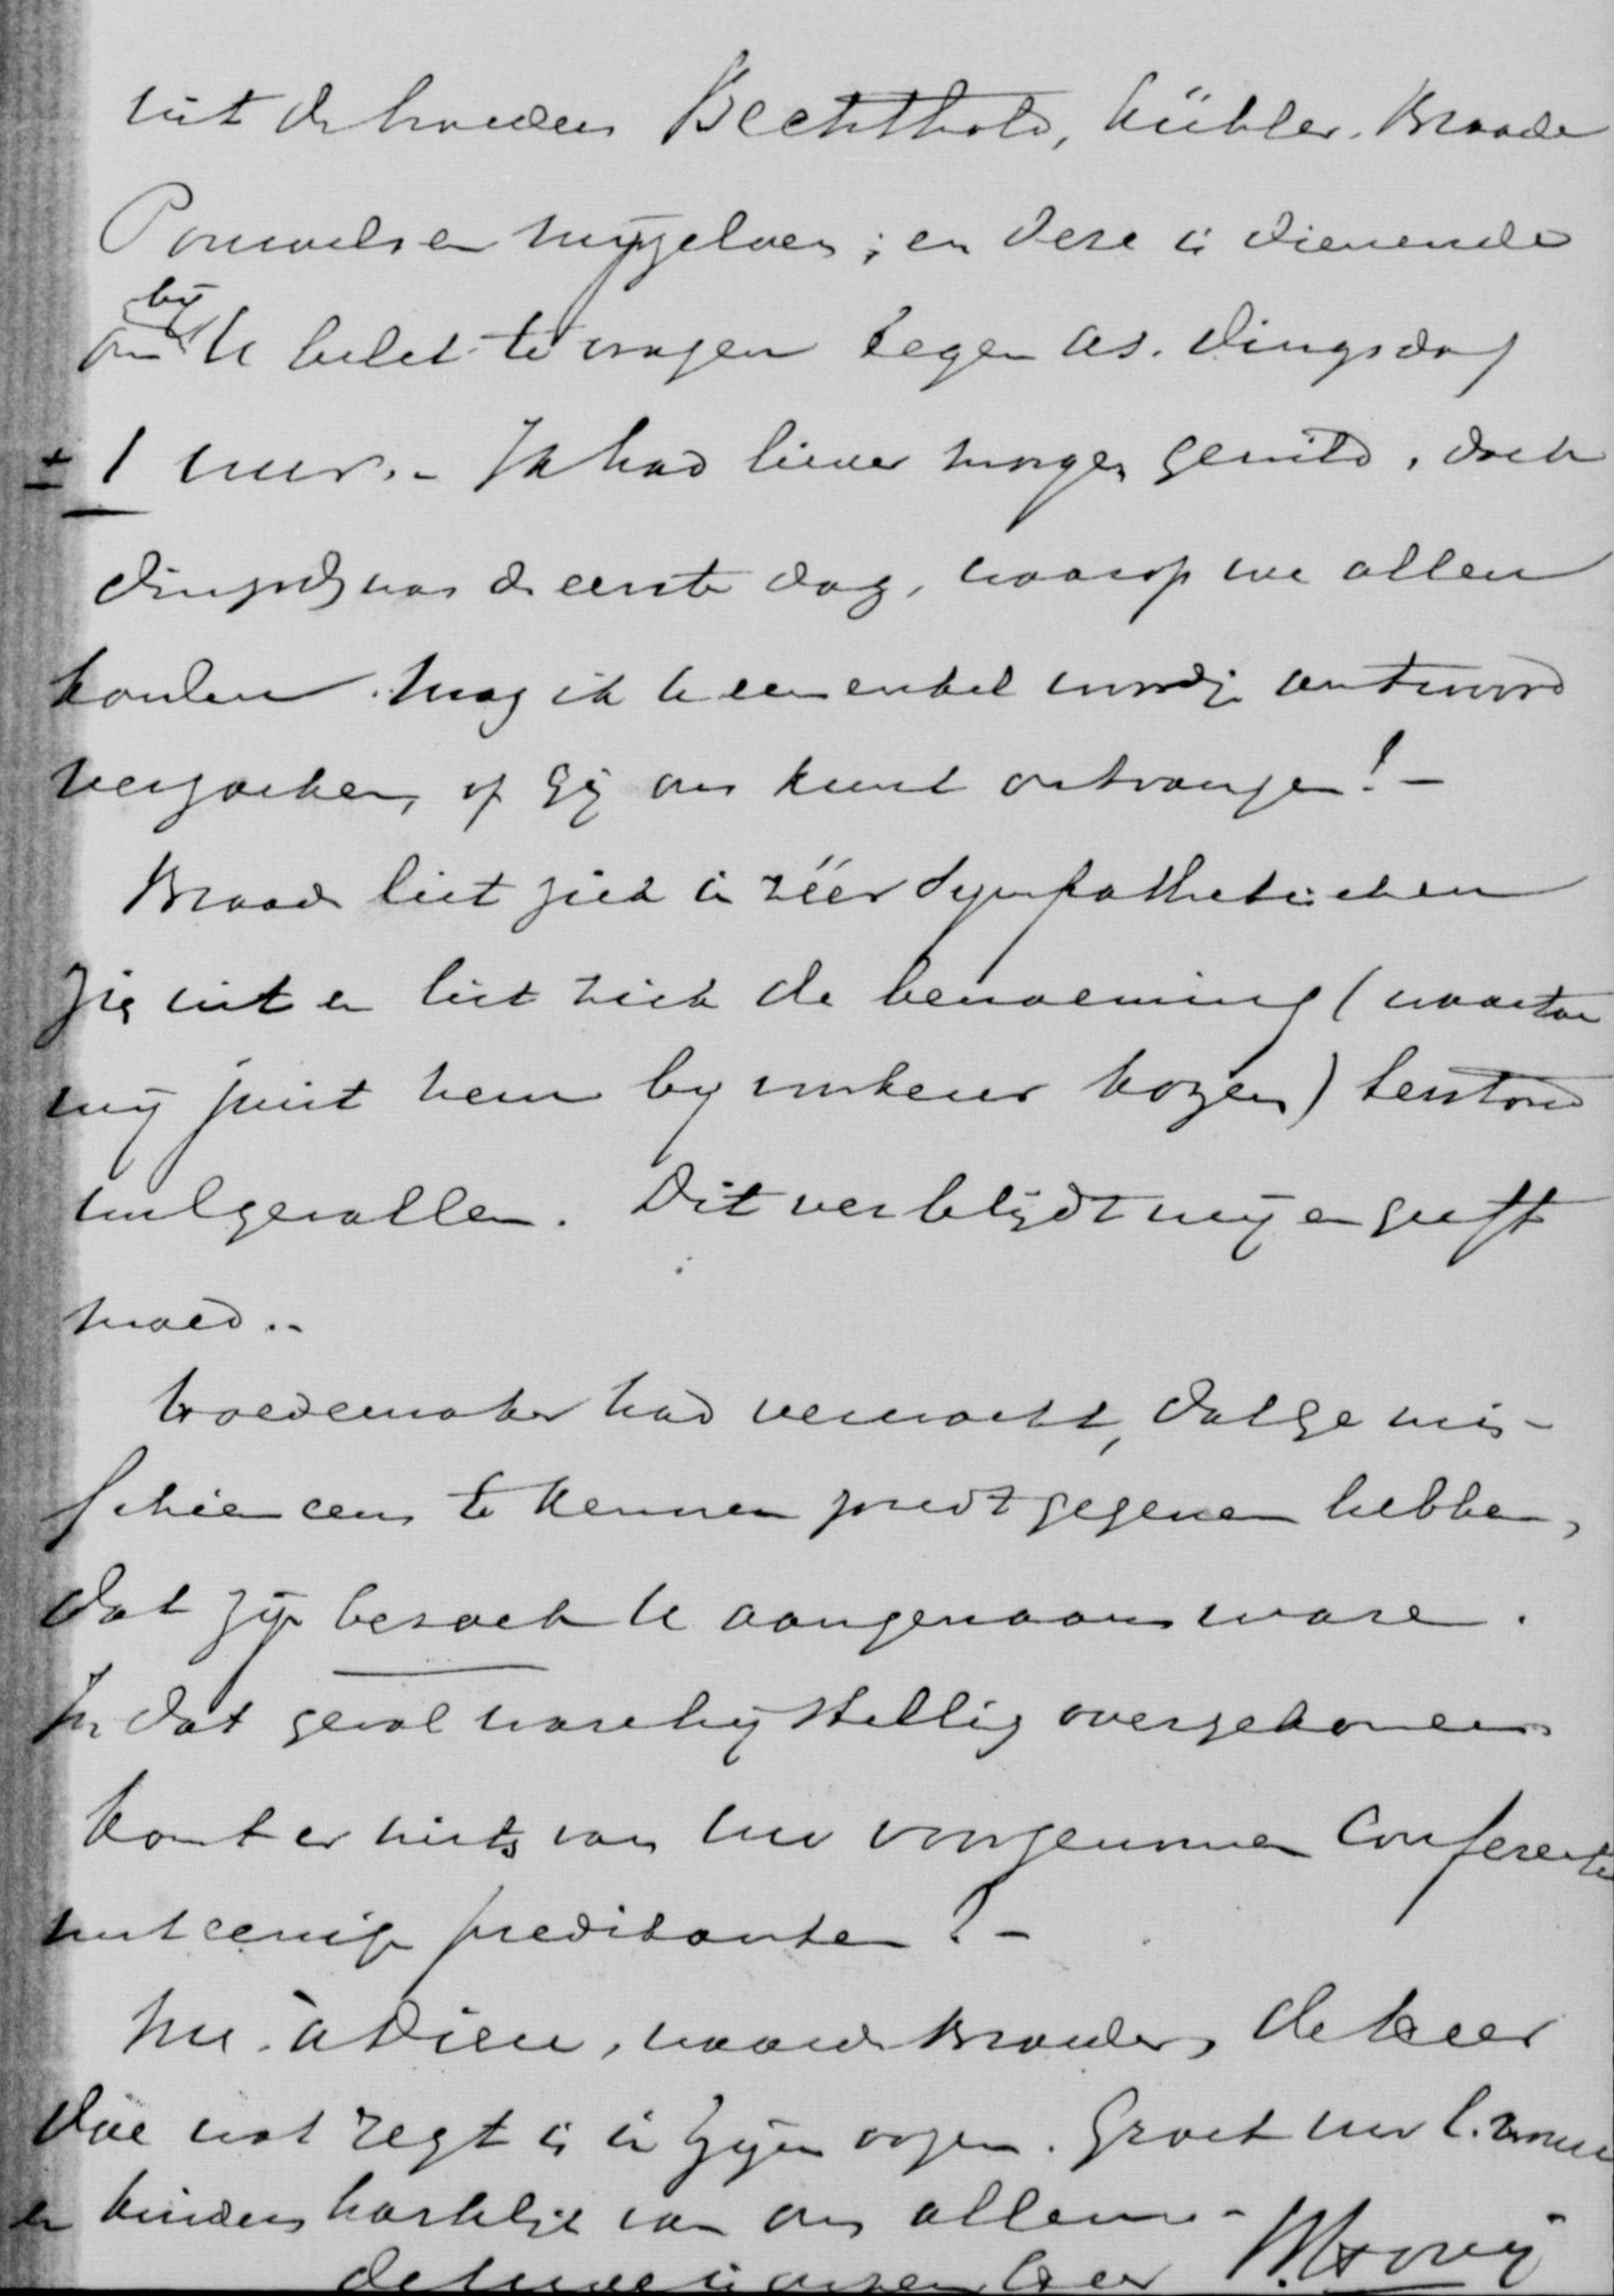 uit de heeren Bechthold, Kübler, Braade
Pouwels en mijzelven; en deze is dienende
om by U belet te vragen tegen as. Dingsdag
± 1 uur. - Ik had liever morgen gewild, doch
Dingsdag was de eerste dag, waarop we allen
konden. Mag ik U een enkel woordje antwoord
verzoeken, of Gij ons kunt ontvangen! -
Braade liet zich in zéér sympathetischen
zin uit en liet zich de benoeming (waartoe
wij juist hem by voorkeur kozen) terstond
welgevallen. Dit verblijdt mij en geeft
moed. -
Hoedemaker had verwacht, dat ge mis-
schien eens te kennen zoudt gegeven hebben,
dat zijn bezoek U aangenaam ware.
In dat geval ware hij stellig overgekomen
Komt er niets van uw voorgenomen Conferentie
met eenige predikanten? -
Nu. à Dieu, waarde Broeder, de Heer
doe wat regt is in Zijne oogen. Groet uw l. vrouw
en kinderen hartelijk van ons allen. -
de Uwe in onzen Heer